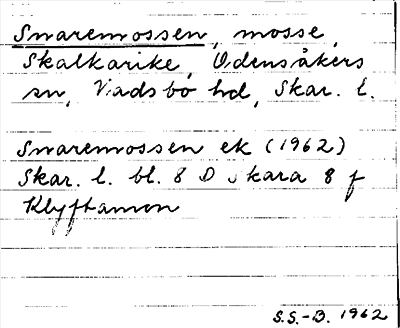 Snaremossen, mosse,
Skalkarike, Odensåkers
sn, Vadsbo hd, Skar. l.
Snaremossen ek (1962)
Skar. l. bl. 8 D Skara 8 f
Klyftamon
S.S.-B. 1962